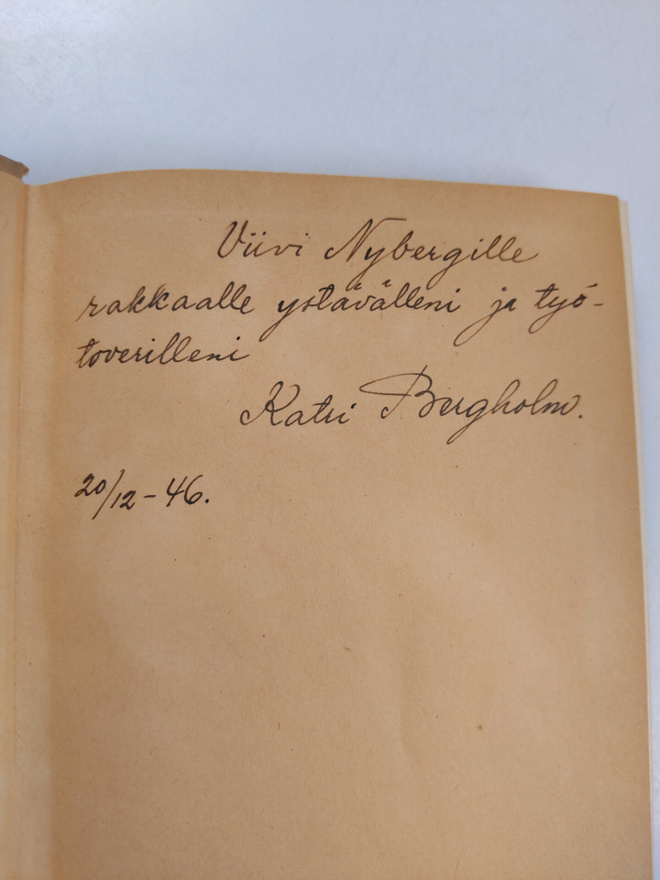 Viivi Nybergille
rakkaalle ystävälleni ja työ-
toverilleni
Katri Bergholm.
20/12-46.